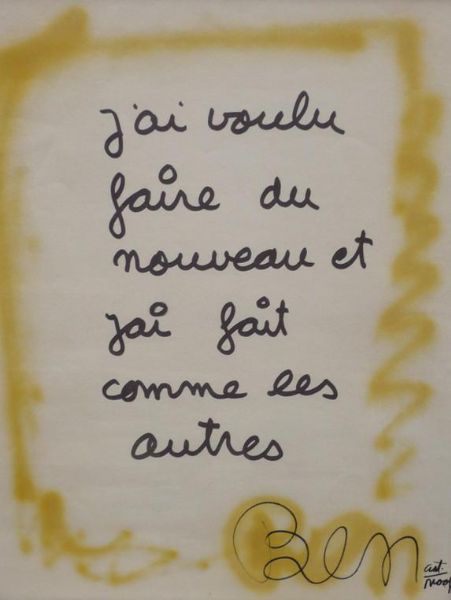 j'ai voulu
faire du
nouveau et
j'ai fait
comme les
autres
Ben